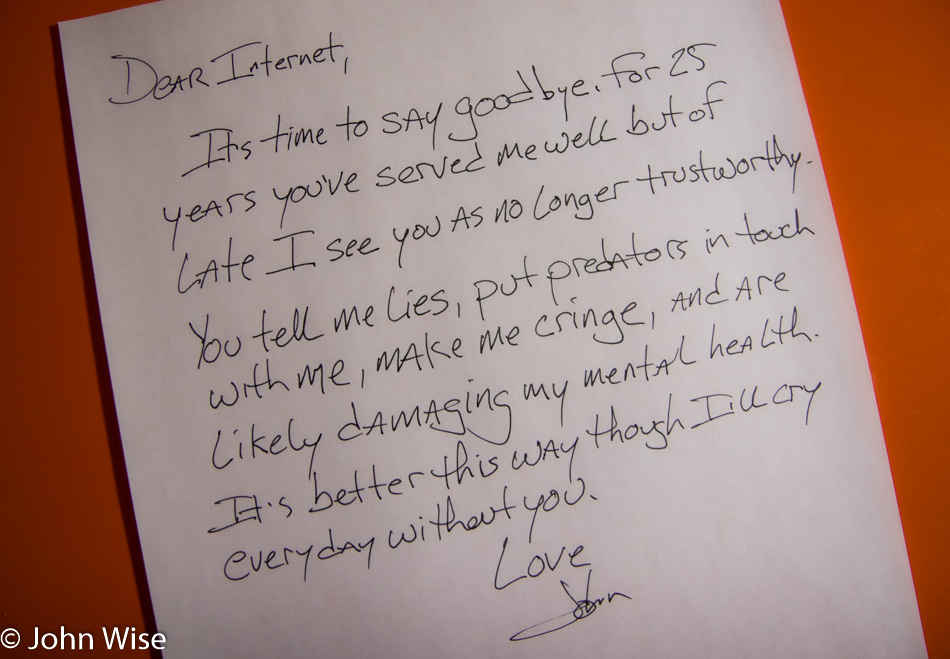 Dear Internet,
It's time to say goodbye. For 25
years you've served me well but of
late I see you as no longer trustworthy.
You tell me lies, put predators in touch
with me, make me cringe, and are
likely damaging my mental health.
It's better this way though I'll cry
everyday without you.
Love
John
© John Wise